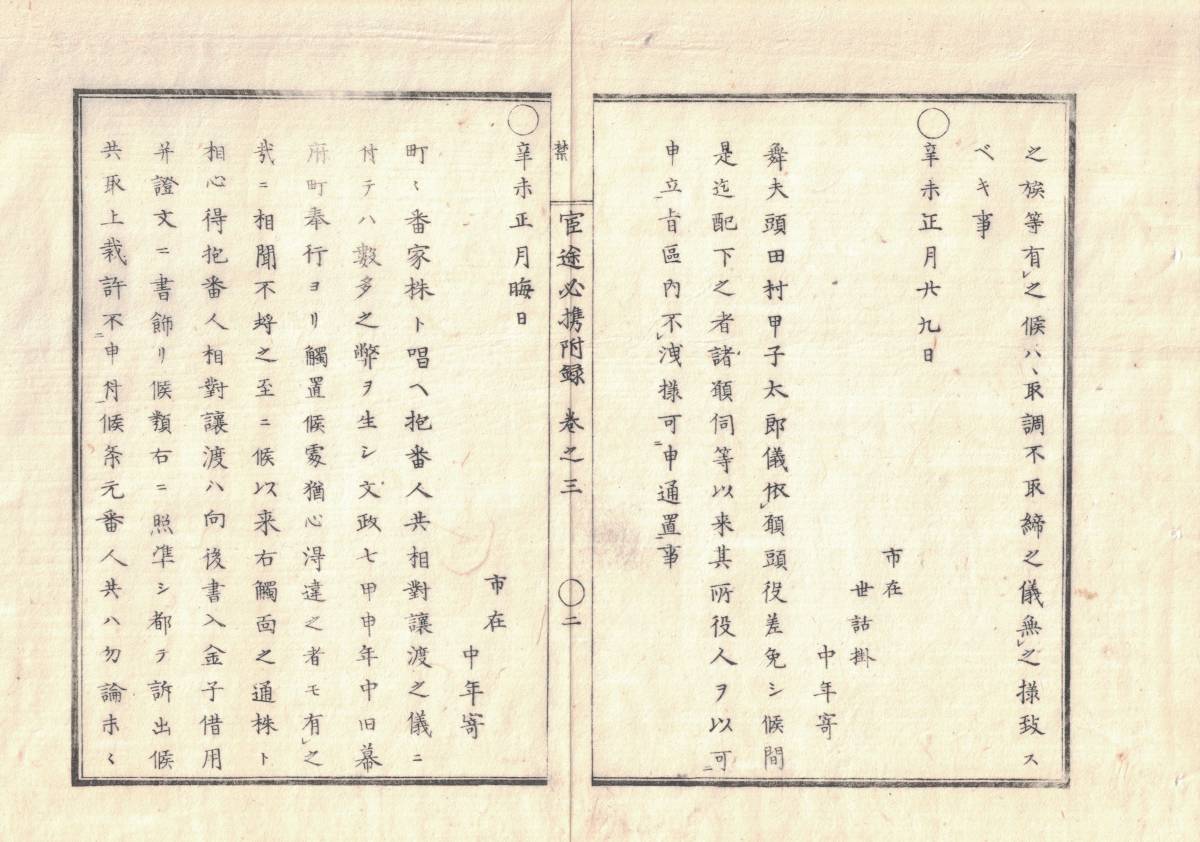 之族等有之候ハ、取調不取締之儀無之様致ス
ベキ事
○辛未正月廿九日
市在
世話掛
中年寄
舞夫頭田村甲子太郎儀依願頭役差免シ候間
是迄配下之者諸願伺等以来其所役人ヲ以可
申立旨區内不洩様可申通置事
禁
宦途必携附録 巻之三 ○二
○辛未正月晦日
市在
中年寄
町〻番家株ト唱ヘ抱番人共相對讓渡之儀ニ
付テハ數多之弊ヲ生シ文政七甲申年中旧幕
府町奉行ヨリ觸置候處猶心得違之者モ有之
哉ニ相聞不埒之至ニ候以来右觸面之通株ト
相心得抱番人相對讓渡ハ向後書入金子借用
并證文ニ書飾リ候類右ニ照準シ都テ訴出候
共取上裁許不申付候条元番人共ハ勿論末〻